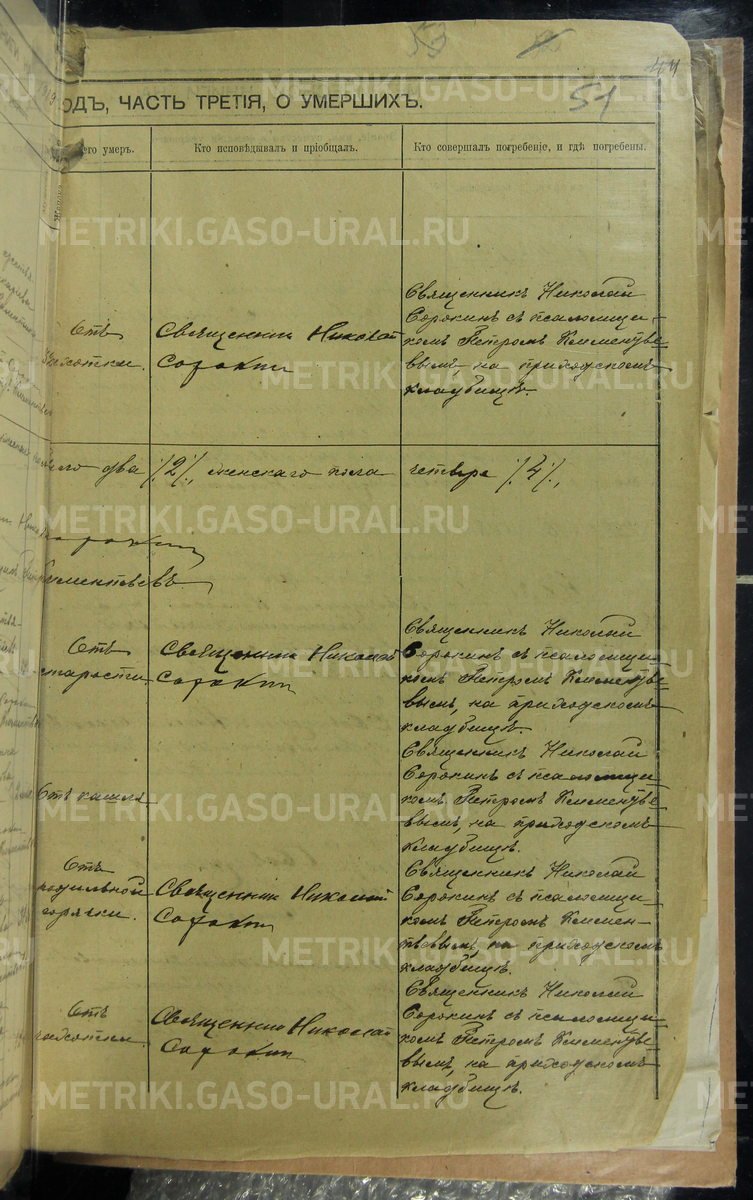 44
51
ОДЪ, ЧАСТЬ ТРЕТІЯ, О УМЕРШИХЪ.
его умеръ.
Кто исповѣдывалъ и пріобщалъ.
Кто совершалъ погребеніе, и гдѣ погребены.
Отъ
чахотки.
Священник Николай
Сорокин
Священникъ Николай
Сорокинъ съ псаломщи-
комъ Петромъ Клементье-
вымъ, на приходскомъ
кладбищѣ.
два /.2/., женскаго пола четвера /.4/.,
Сорокин
Клементьевъ
Отъ
старости.
Священник Николай
Сорокин
Священникъ Николай
Сорокинъ съ псаломщи-
комъ Петромъ Клементье-
вымъ, на приходскомъ
кладбищѣ.
Отъ кашля
Священникъ Николай
Сорокинъ съ псаломщи-
комъ Петромъ Клементье-
вымъ, на приходскомъ
кладбищѣ.
Отъ
родильной
горячки.
Священник Николай
Сорокин
Священникъ Николай
Сорокинъ съ псаломщи-
комъ Петромъ Клемен-
тьевымъ на приходскомъ
кладбищѣ.
Отъ
чахотки.
Священник Николай
Сорокин
Священникъ Николай
Сорокинъ съ псаломщи-
комъ Петромъ Клементье-
вымъ, на приходскомъ
кладбищѣ.
METRIKI.GASO-URAL.RU